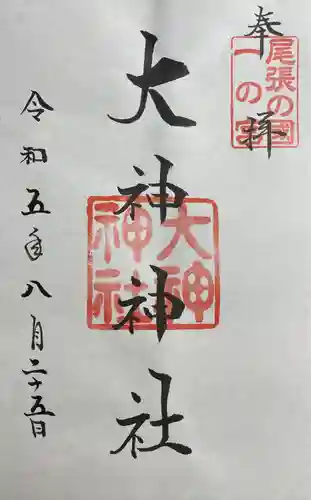 奉拝
尾張の国
一の宮
大神神社
大神
神社
令和五年八月二十五日